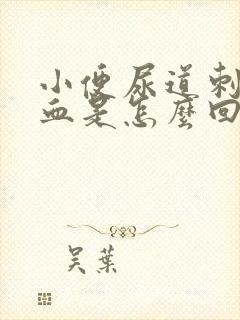 小便尿道刺
血是怎麼回
吴葉